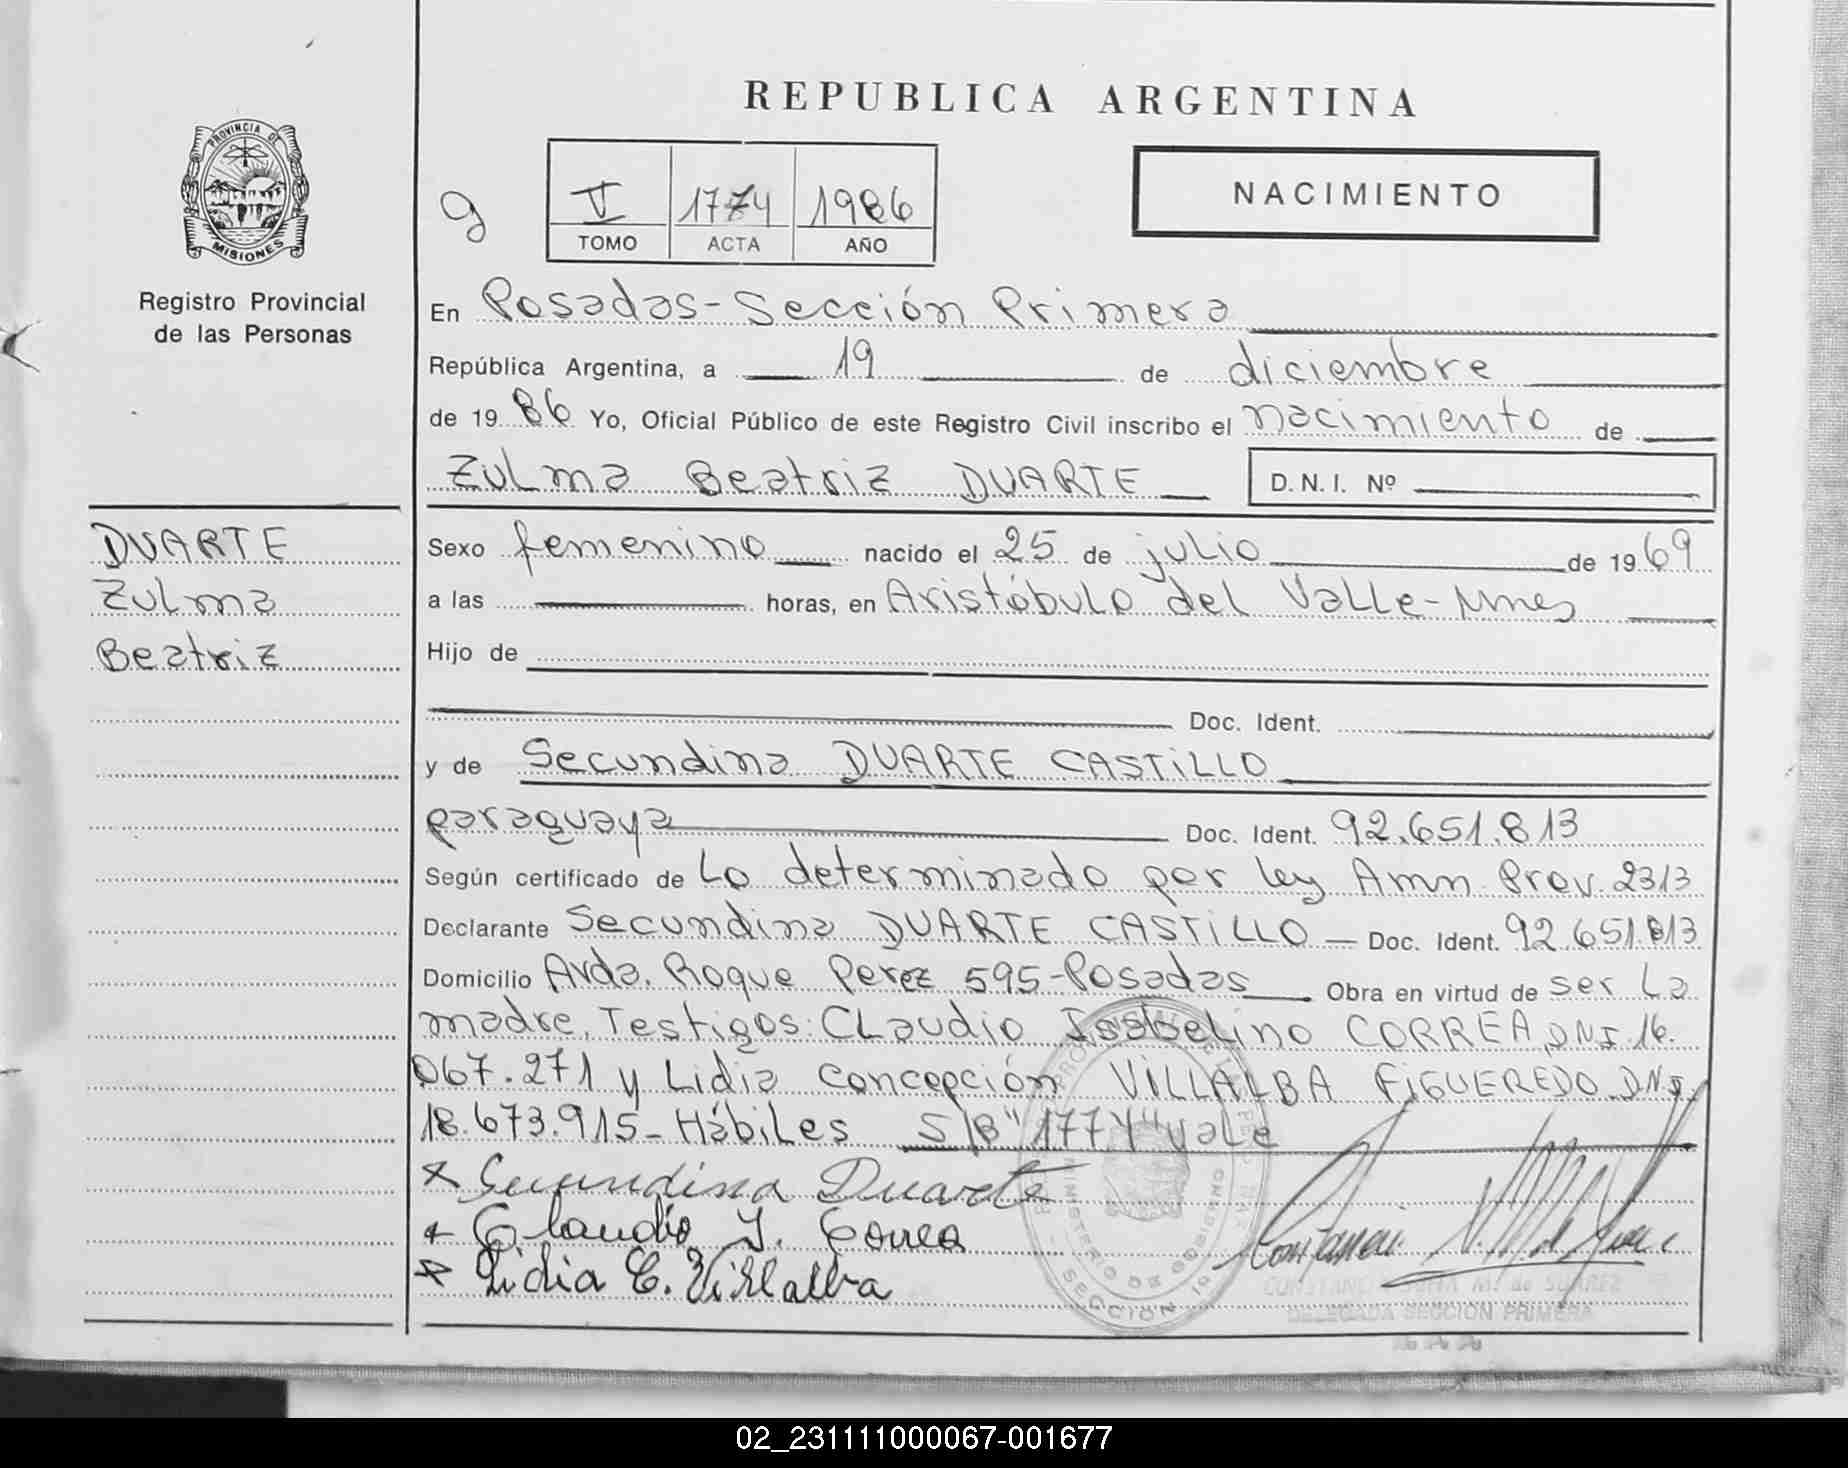 REPUBLICA ARGENTINA
PROVINCIA DE
MISIONES
Registro Provincial
de las Personas
g
V 1774 1986
TOMO ACTA AÑO
NACIMIENTO
En Posadas-Sección Primera
República Argentina, a 19 de diciembre
de 19 86 Yo, Oficial Público de este Registro Civil inscribo el nacimiento de
Zulma Beatriz DUARTE D.N.I. Nº
DUARTE
Zulma
Beatriz
Sexo femenino nacido el 25 de julio de 19 69
a las horas, en Aristóbulo del Valle-Mnes
Hijo de
Doc. Ident.
y de Secundina DUARTE CASTILLO
paraguaya Doc. Ident. 92.651.813
Según certificado de Lo determinado por ley Amn. Prov. 2313
Declarante Secundina DUARTE CASTILLO - Doc. Ident. 92.651.813
Domicilio Avda. Roque Perez 595-Posadas Obra en virtud de ser La
madre, Testigos: Claudio Isabelino CORREA, DNI 16.
067.271 y Lidia Concepción VILLALBA FIGUEREDO. DNI.
18.673.915- Hábiles S/B "1774" vale
x Secundina Duarte
x Claudio I. Correa
x Lidia C. Villalba
MINISTERIO DE GOBIERNO
SECCION 1º
M. de SUAREZ
DELEGADA SECCION PRIMERA
02_231111000067-001677